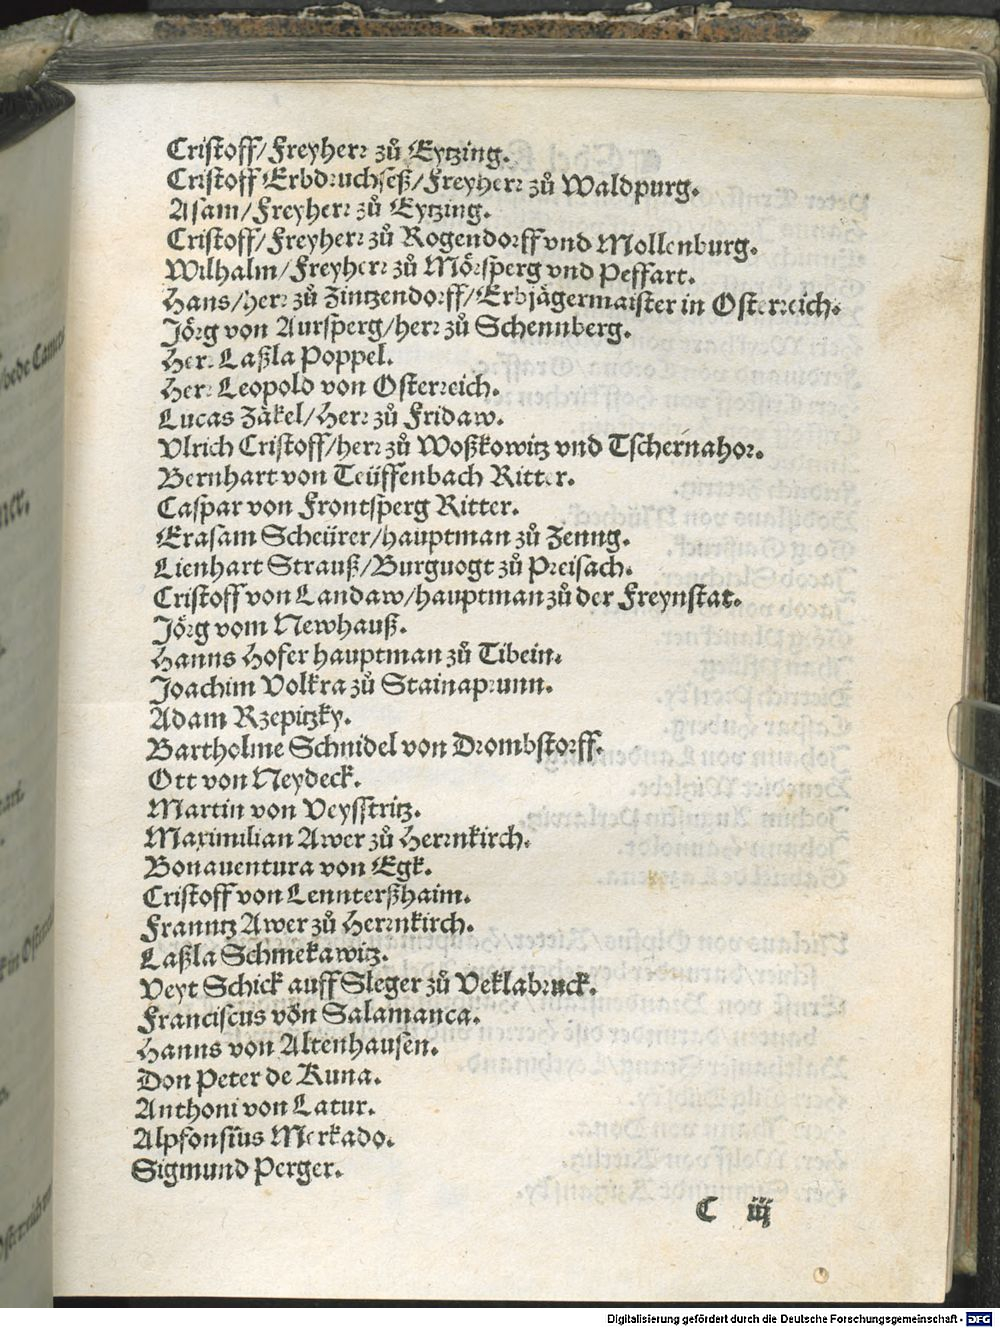 Cristoff/Freyherr zů Eytzing.
Cristoff Erbdruchseß/Freyherr zů Waldpurg.
Asam/Freyherr zů Eytzing.
Cristoff/Freyherr zů Rogendorff vnd Mollenburg.
Wilhalm/Freyherr zů Mörsperg vnd Peffart.
Hans/herr zů Zintzendorff/Erbjägermaister in Osterreich.
Jörg von Aursperg/herr zů Schennberg.
Herr Laßla Poppel.
Herr Leopold von Osterreich.
Lucas Zäkel/Herr zů Fridaw.
Vlrich Cristoff/herr zů Woßkowitz vnd Tschernahor.
Bernhart von Teüffenbach Ritter.
Caspar von Frontsperg Ritter.
Erasam Scheürer/hauptman zů Zenng.
Lienhart Strauß/Burguogt zů Preisach.
Cristoff von Landaw/hauptman zů der Freynstat.
Jörg vom Newhauß.
Hanns Hofer hauptman zů Tibein.
Joachim Volkra zů Stainaprunn.
Adam Rzepitzky.
Bartholme Schnidel von Drombstorff.
Ott von Neydeck.
Martin von Veysstritz.
Maximilian Awer zů Herrnkirch.
Bonauentura von Egk.
Cristoff von Lennterßhaim.
Franntz Awer zů Herrnkirch.
Laßla Schmekawitz.
Veyt Schick auff Sleger zů Veklabruck.
Franciscus von Salamanca.
Hanns von Altenhausen.
Don Peter de Kuna.
Anthoni von Latur.
Alpfonsius Merkado.
Sigmund Perger.
C iij
Digitalisierung gefördert durch die Deutsche Forschungsgemeinschaft - DFG